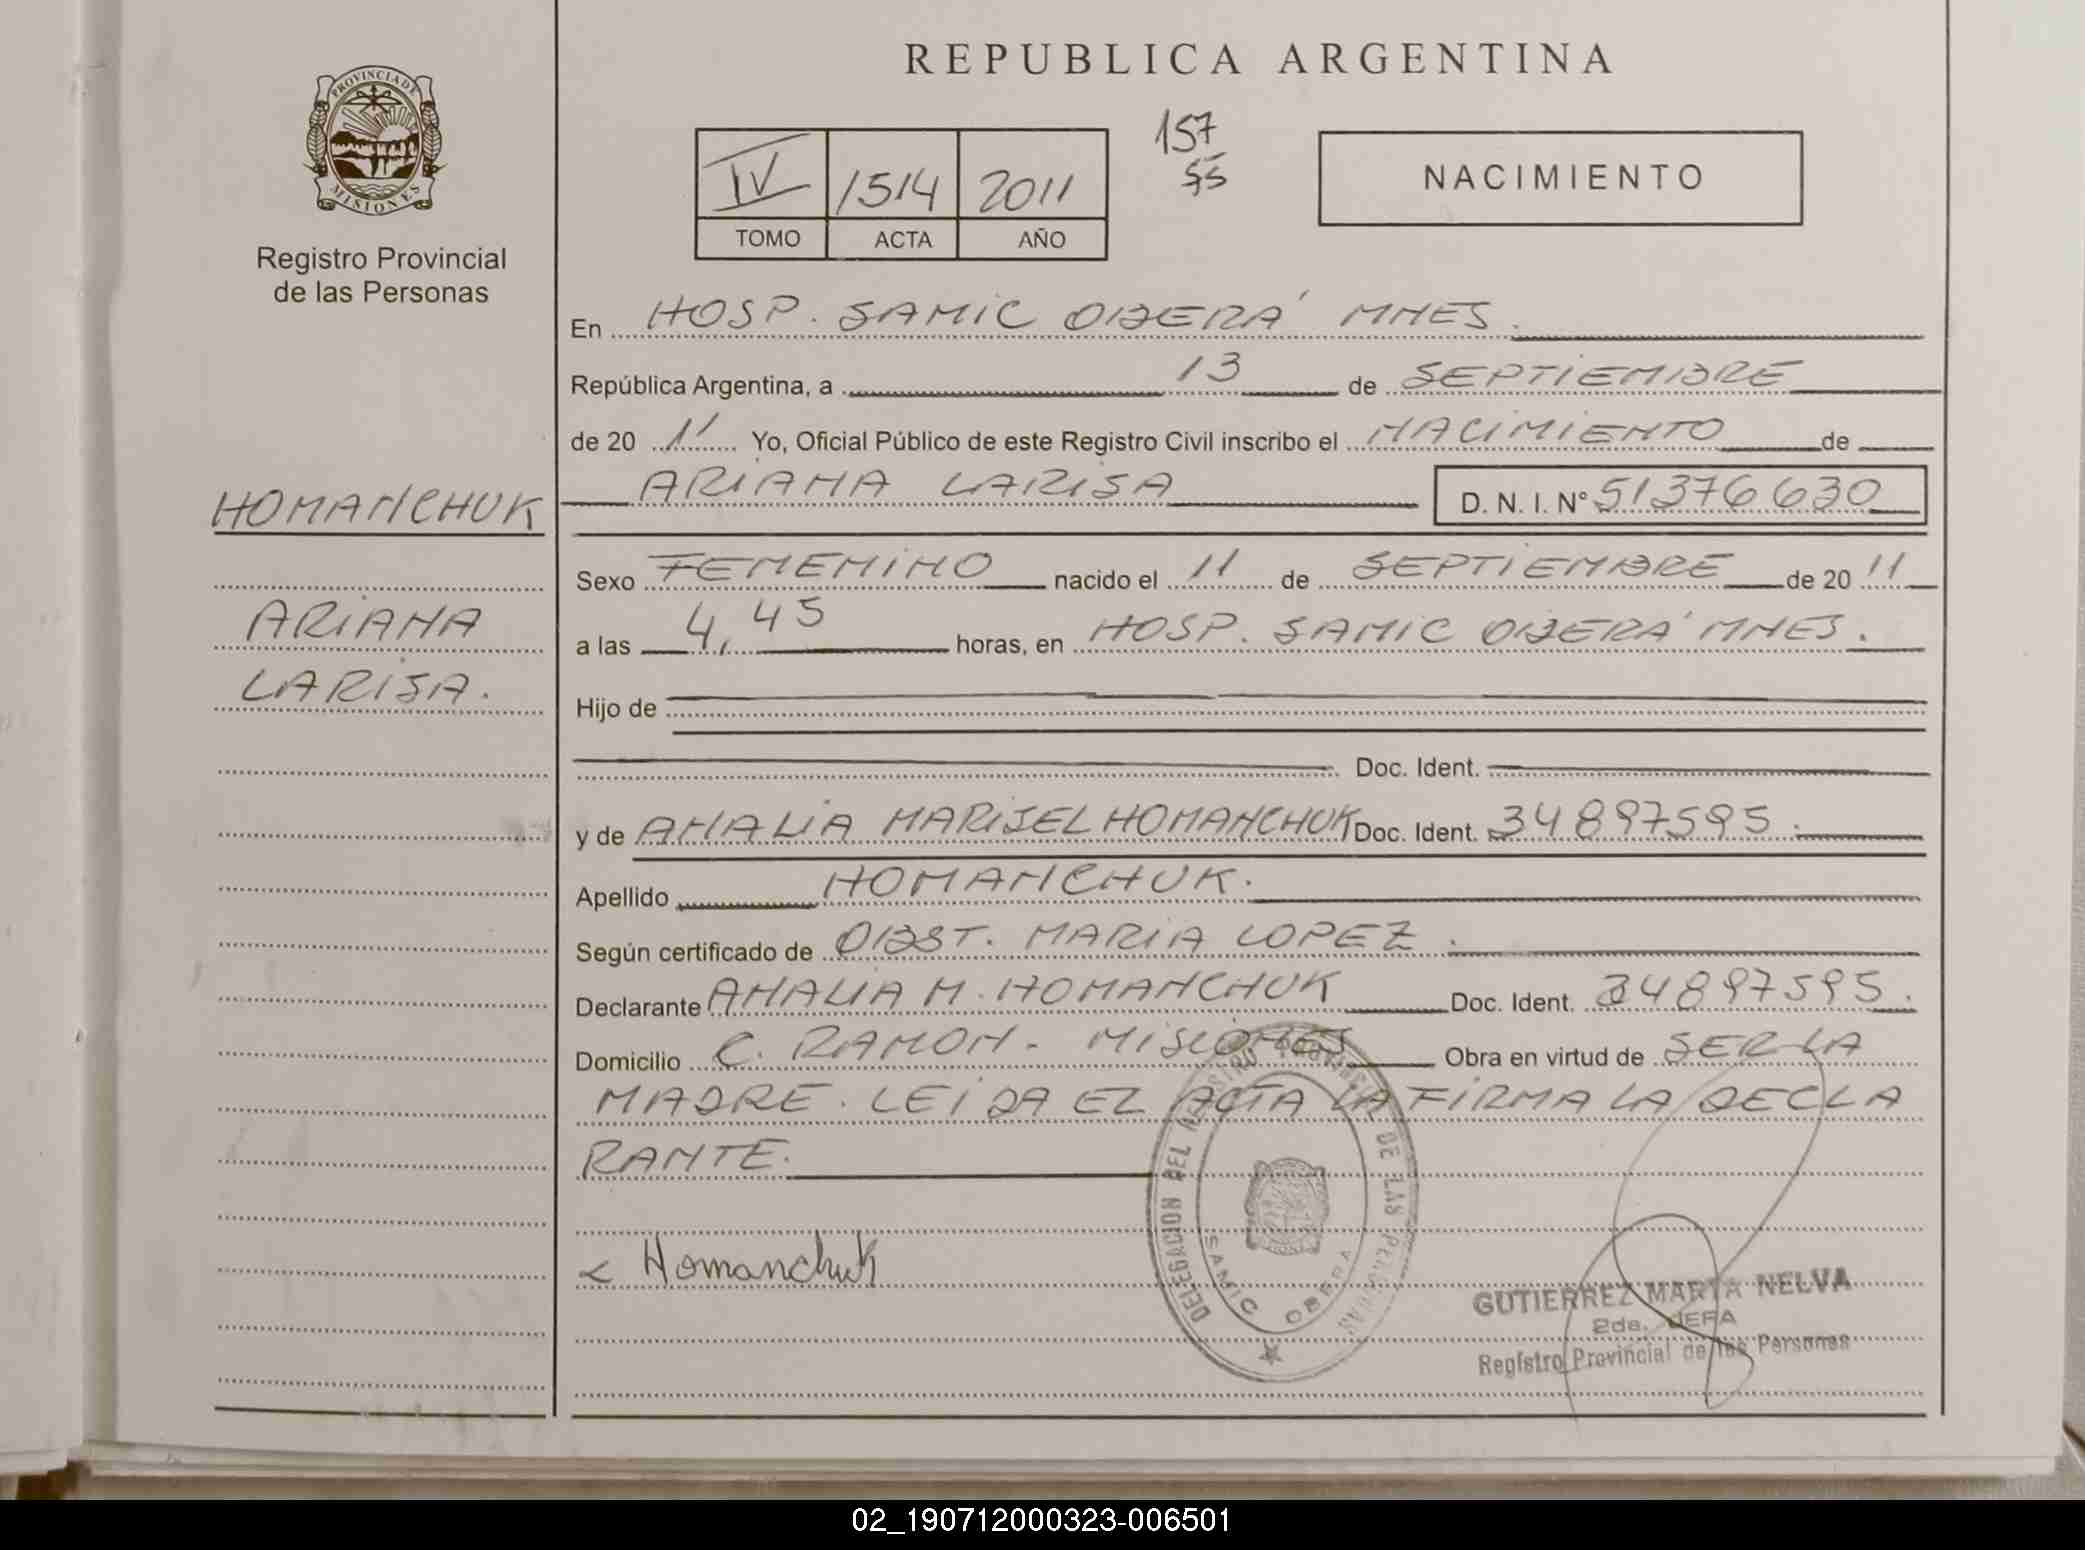 REPUBLICA ARGENTINA
PROVINCIA DE
MISIONES
Registro Provincial
de las Personas
IV 1514 2011
TOMO ACTA AÑO
157
NACIMIENTO
En HOSP. SAMIC OBERÁ MNES.
República Argentina, a 13 de SEPTIEMBRE
de 20 11 Yo, Oficial Público de este Registro Civil inscribo el NACIMIENTO de
HOMANCHUK
ARIANA LARISA D. N. I. N° 51376630
Sexo FEMENINO nacido el 11 de SEPTIEMBRE de 20 11
ARIANA
a las 4,45 horas, en HOSP. SAMIC OBERÁ MNES.
LARISA.
Hijo de
Doc. Ident.
y de ANALIA MARISEL HOMANCHUK Doc. Ident. 34897595.
Apellido HOMANCHUK.
Según certificado de OBST. MARIA LOPEZ.
Declarante ANALIA M. HOMANCHUK Doc. Ident. 34897595.
Domicilio C. RAMON. MISIONES Obra en virtud de SER LA
MADRE. LEIDA EL ACTA LA FIRMA LA DECLA
RANTE.
DELEGACION DEL REGISTRO PROVINCIAL DE LAS PERSONAS
SAMIC OBERA
Homanchuk
GUTIERREZ MARTA NELVA
2da. JEFA
Registro Provincial de las Personas
02_190712000323-006501